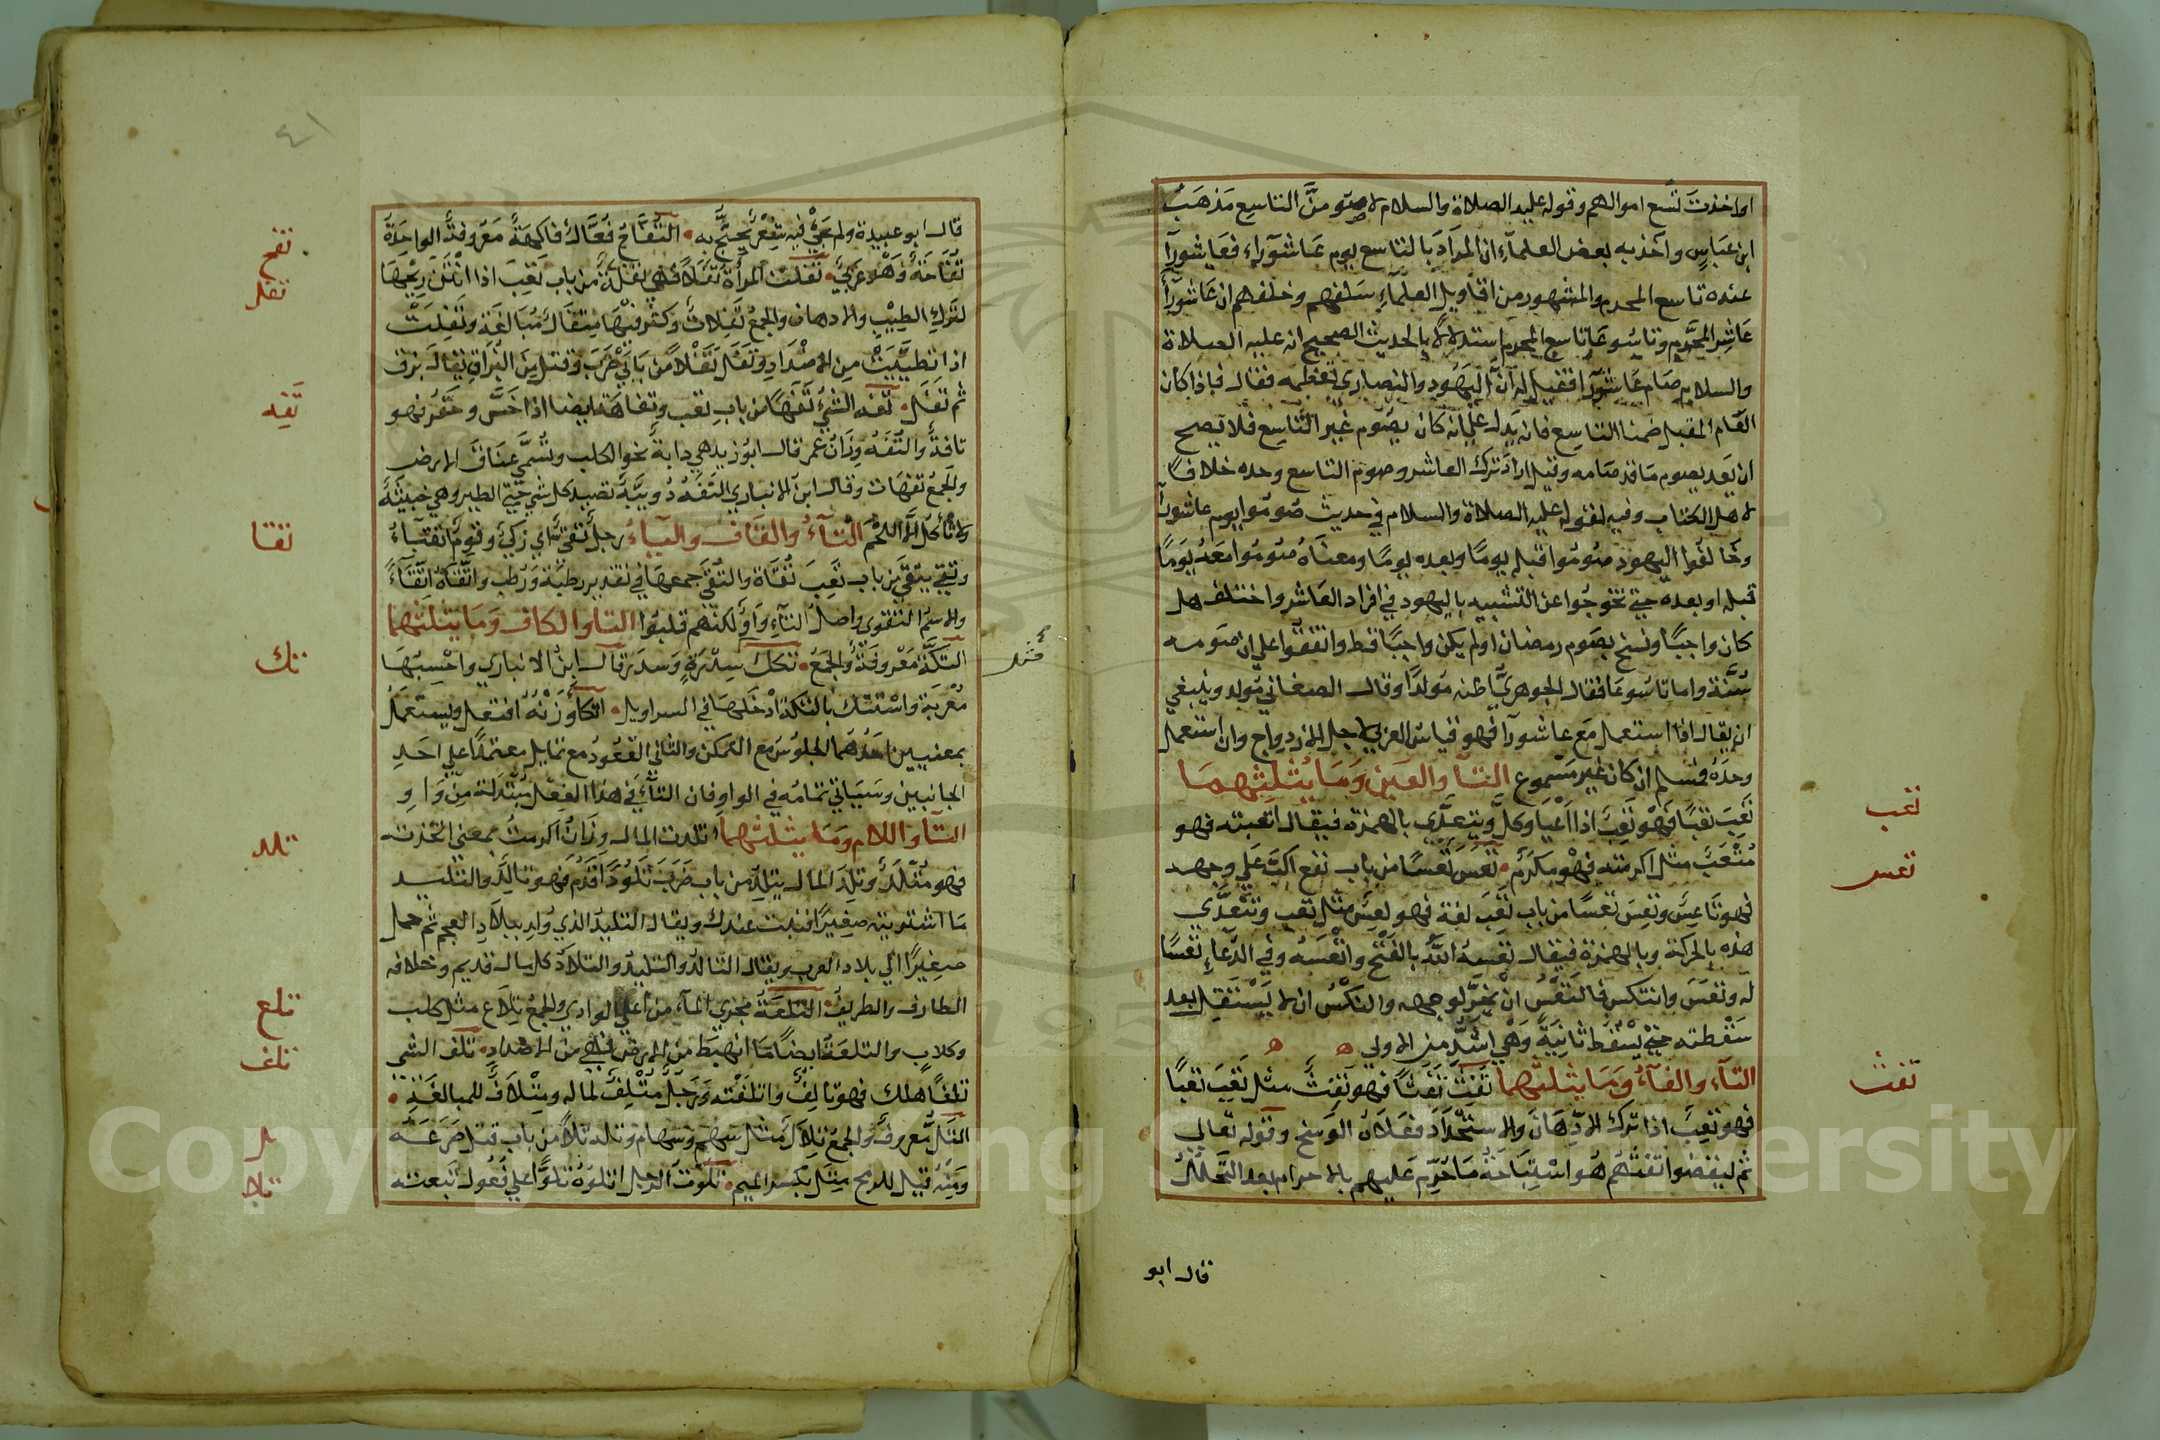 او اخذت تسع اموالهم وقوله عليه الصلاة والسلام لاصومن التاسع مذهب
ابن عباس واخذ به بعض العلماء ان المراد بالتاسع يوم عاشوراء فعاشورا
عنده تاسع المحرم والمشهور من اقاويل العلماء سلفهم وخلفهم ان عاشورا
عاشر المحرم وتاسوعا تاسع المحرم استدلالا بالحديث الصحيح انه عليه الصلاة
والسلام صام عاشورا فقيل له ان اليهود والنصارى تعظمه فقال فاذا كان
العام المقبل صمنا التاسع فانه يدل على انه كان يصوم غير التاسع فلا يصح
ان يعد بصوم ما قد صامه وقيل اراد ترك العاشر وصوم التاسع وحده خلافا
لاهل الكتاب وفيه لقوله عليه الصلاة والسلام في حديث صوموا يوم عاشورا
وخالفوا اليهود صوموا قبله يوما وبعده يوما ومعناه صوموا معه يوما
قبله او بعده حتى تخرجوا عن التشبيه باليهود في افراد العاشر واختلف هل
كان واجبا ونسخ بصوم رمضان او لم يكن واجبا قط واتفقوا على ان صومه
سنة واما تاسوعا فقال الجوهري اظنه مولدا وقال الصغاني مولد وينبغي
ان يقال اذا استعمل مع عاشورا فهو قياس العربي لاجل الازدواج وان استعمل
وحده فمسلم ان كان غير مسموع التا والعين وما يثلثهما
تعب تعبا فهو تعب اذا اعيا وكل ويتعدى بالهمزة فيقال اتعبته فهو
متعب مثل اكرمته فهو مكرم تعس تعسا من باب نفع اكب على وجهه
فهو تاعس وتعس تعسا من باب تعب لغة فهو تعس مثل تعب وتتعدى
هذه بالحركة وبالهمزة فيقال تعسه الله بالفتح واتعسه وفي الدعاء تعسا
له وتعس وانتكس فالتعس ان يخر لوجهه والنكس ان لا يستقيل بعد
سقطته حتى يسقط ثانية وهي اشد من الاولى ه ه
التاء والفاء وما يثلثهما تفث تفثا فهو تفث مثل تعب تعبا
فهو تعب اذا ترك الادهان والاستحداد فعلاه الوسخ وقوله تعالى
ثم ليقضوا تفثهم هو استباحة ما حرم عليهم بالاحرام بعد التحلل
قال ابو
تعب
تعس
تفث
٤١
قال ابو عبيدة ولم يجئ فيه شعر يحتج به التفاح فعال فاكهة معروفة الواحدة
تفاحة وهو عربي تفلت المرأة تفلا فهي تفلة من باب تعب اذا انتن ريحها
لترك الطيب والادهان والجمع تفلات وكثر فيها متفال مبالغة وتفلت
اذا تطيبت من الاضداد وتفل تفلا من بابي ضرب وقتل من البزاق يقال بزق
ثم تفل تفه الشيء تفها من باب تعب وتفاهة ايضا اذا خس وحقر فهو
تافه والتفه وزان عمر قال ابو زيد هي دابة نحو الكلب وتسمى عناق الارض
والجمع تفهات وقال ابن الانباري التفه دويبة تصيد كل شي حتى الطير وهي خبيثة
لا تاكل الا اللحم التاء والقاف والياء رجل تقي اي زكي وقوم اتقياء
وتقي يتقى من باب تعب تقاة والتقى جمعها في تقدير رطبة ورطب واتقاه اتقاء
والاسم التقوى واصل التاء واو لكنهم قلبوا التا والكاف وما يثلثهما
التكة معروفة والجمع تكك سدرة وسدر قال ابن الانباري واحسبها
معربة واستتك بالتكة ادخلها في السراويل اتكا وزنه افتعل ويستعمل
بمعنيين احدهما الجلوس مع التمكن والثاني القعود مع تمايل معتمدا على احد
الجانبين وسياتي تمامه في الواو فان التاء في هذا الفعل مبتدلة من واو
التاء واللام وما يثلثهما اتلدت المال وزان اكرمت بمعنى اتخذت
فهو متلد وتلد المال يتلد من باب ضرب تلودا قدم فهو تالد والتليد
ما اشتريته صغيرا فنبت عندك ويقال التليد الذي ولد ببلاد العجم ثم حمل
صغيرا الى بلاد العرب ويقال التالد والتليد والتلاد كل مال قديم وخلافه
الطارف والطريف التلعة مجرى الماء من اعلى الوادي والجمع تلاع مثل كلب
وكلاب والتلعة ايضا ما انهبط من الارض فهي من الاضداد تلف الشي
تلفا هلك فهو تالف واتلفته ورجل متلف لماله ومتلاف للمبالغة
التل معروف والجمع تلال مثل سهم وسهام وتله تلا من باب قتل صرعه
ومنه قيل للرمح متل بكسر الميم تلوت الرجل اتلوه تلوا على فعول تبعته
تفح
تفل
تفه
تقا
تكك
تلد
تلع
تلف
تل
تلا
مثل
Copyright © King Saud University